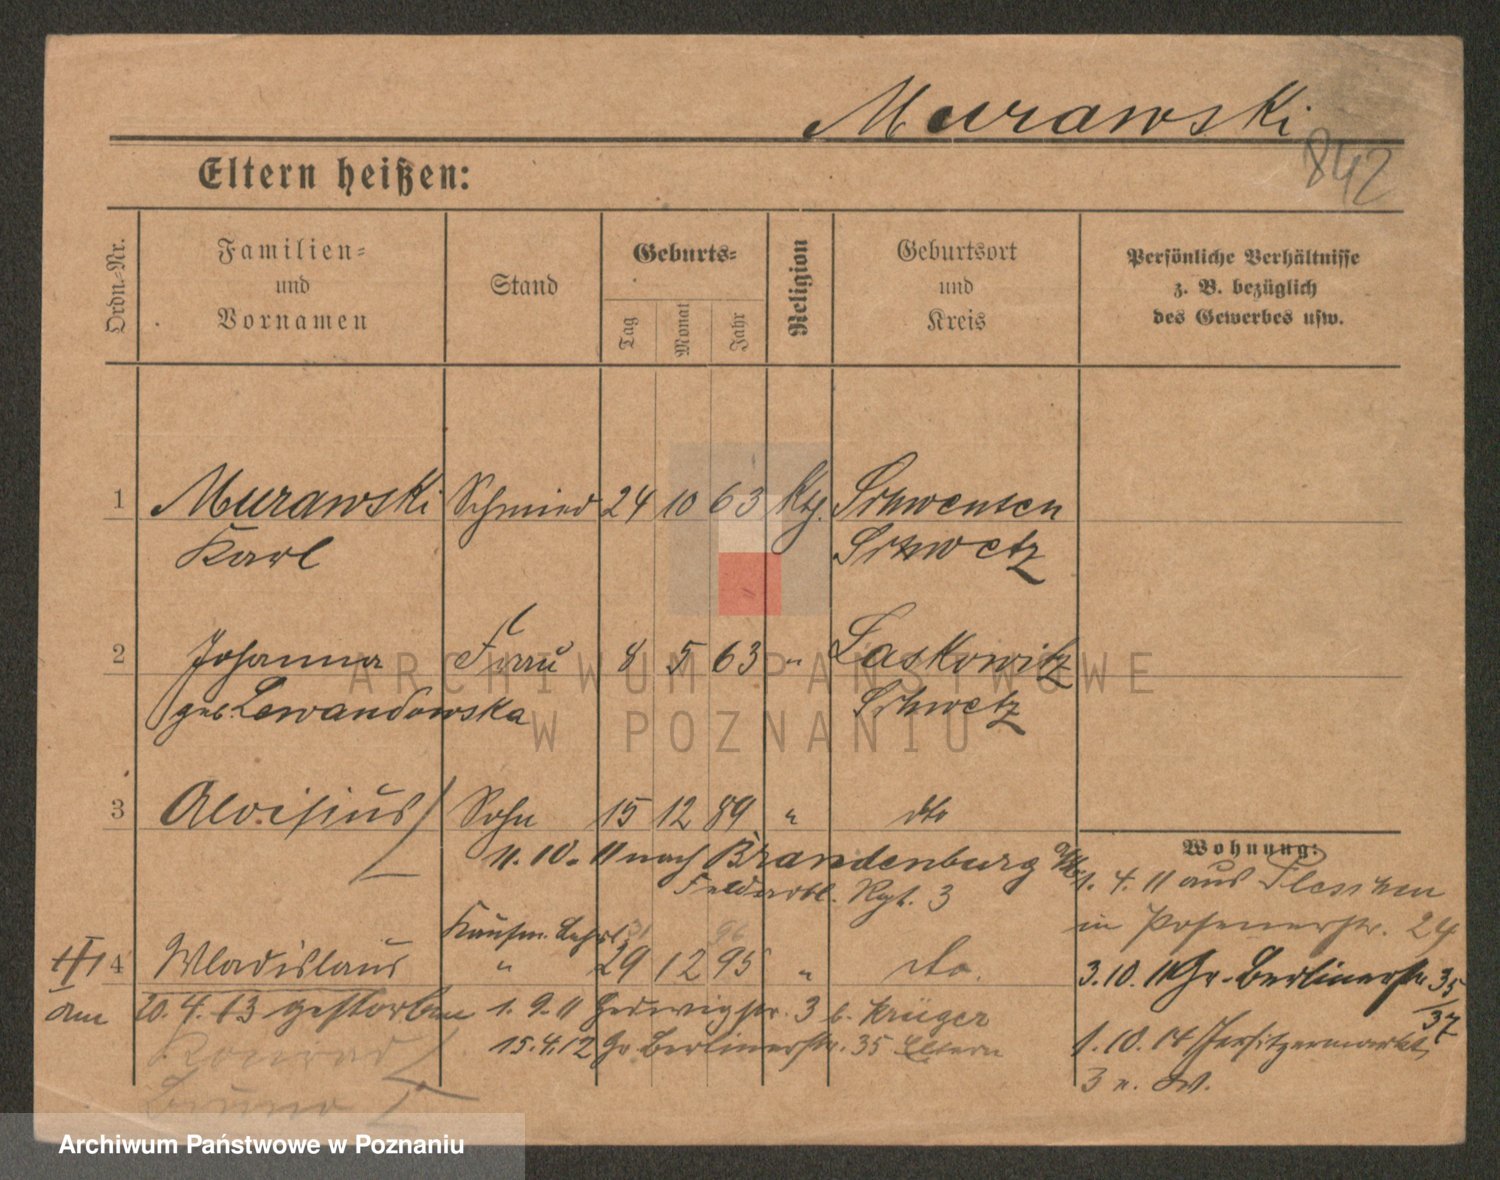 Murawski
842
Eltern heißen:
Ordn.-Nr.
Familien-
und
Vornamen
Stand
Geburts-
Tag
Monat
Jahr
Religion
Geburtsort
und
Kreis
Persönliche Verhältnisse
z. B. bezüglich
des Gewerbes usw.
1 Murawski Schmied 24 10 63 Kth. Schwenten
Karl Schwetz
2 Johanna Frau 8 5 63 " Laskowitz
geb. Lewandowska Schwetz
3 Aloisius Sohn 15 12 89 " dto
11.10.11 nach Brandenburg a/H.
Feldartl. Rgt. 3
Wohnung:
1.4.11 aus Pleschen
in Posenerstr. 29
Kaufm. Lehrl.
4 Wladislaus " 29 12 95 " dto.
3.10.11 Gr. Berlinerstr. 35
37
am 20.4.13 gestorben 1.9.11 Hedwigstr. 3 b. Krüger
Konrad 15.4.12 Gr. Berlinerstr. 35 Eltern
1.10.14 Jersitzermarkt
3 n. W.
Bruno
ARCHIWUM PAŃSTWOWE
W POZNANIU
Archiwum Państwowe w Poznaniu